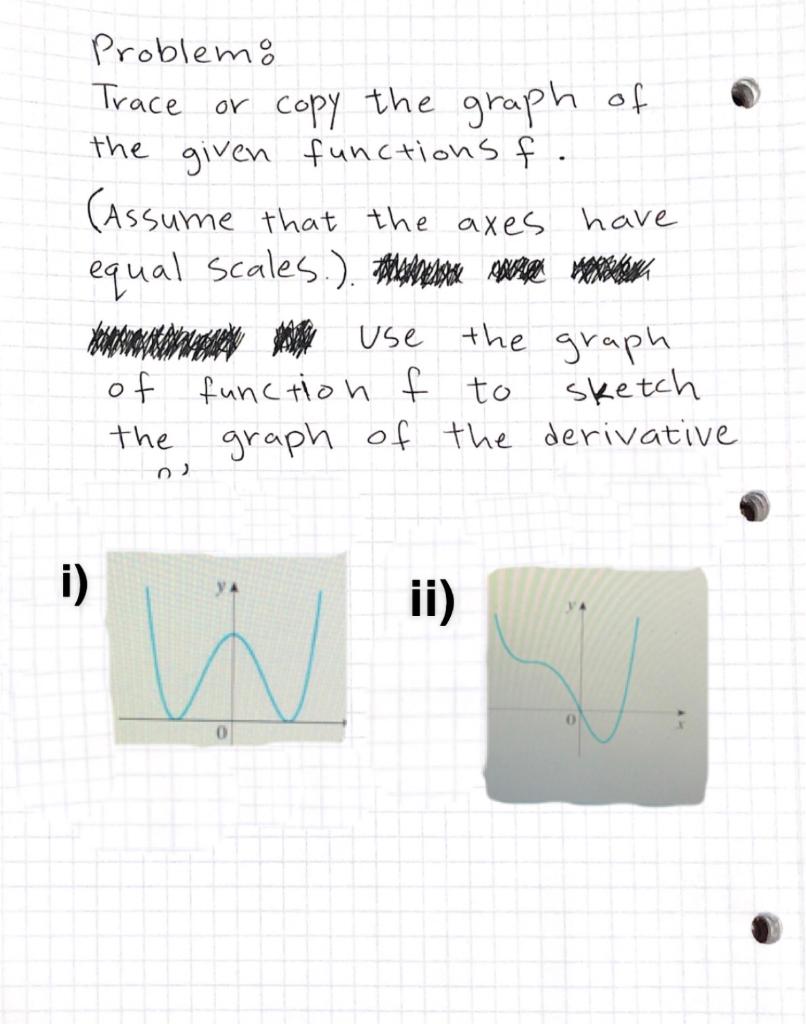 Problem:
Trace or copy the graph of
the given functions f.
(Assume that the axes have
equal scales.).
Use the graph
of function f to sketch
the graph of the derivative
i)
ii)
y
0
y
0
x